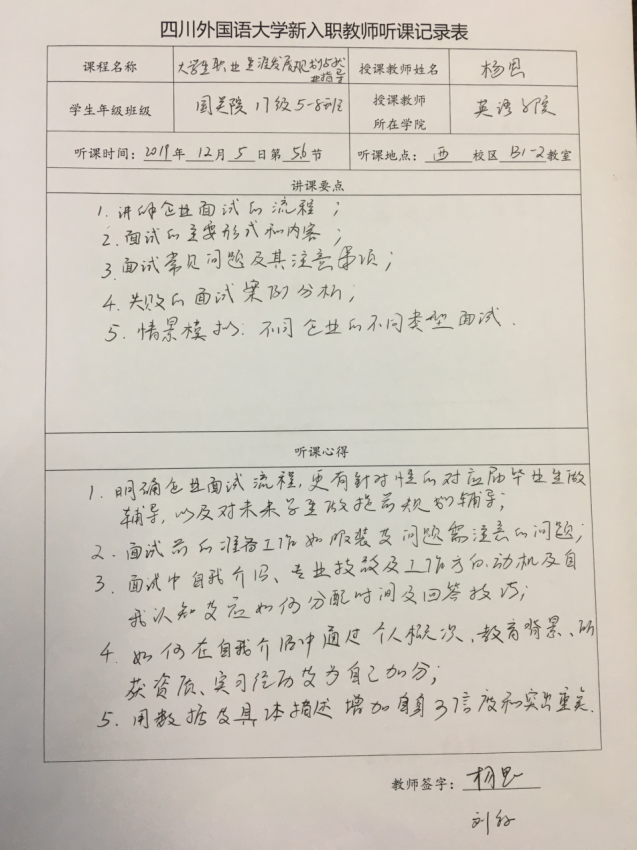 四川外国语大学新入职教师听课记录表
课程名称 大学生职业生涯发展规划与就业指导 授课教师姓名 杨思
学生年级班级 国关院 17级5-8班 授课教师所在学院 英语学院
听课时间：2019年12月5日第56节 听课地点：西校区B1-2教室
讲课要点
1. 讲解企业面试的流程；
2. 面试的主要形式和内容；
3. 面试常见问题及其注意事项；
4. 失败的面试案例分析；
5. 情景模拟：不同企业的不同类型面试.
听课心得
1. 明确企业面试流程，更有针对性的对应届毕业生做
辅导，以及对未来学生做提前规划辅导；
2. 面试前的准备工作如服装及问题需注意的问题；
3. 面试中自我介绍、专业技能及工作方向、动机及自
我认知及应如何分配时间及回答技巧；
4. 如何在自我介绍中通过个人概况、教育背景、所
获资质、实习经历及为自己加分；
5. 用数据及具体描述增加自身可信度和突出重点.
教师签字：杨思